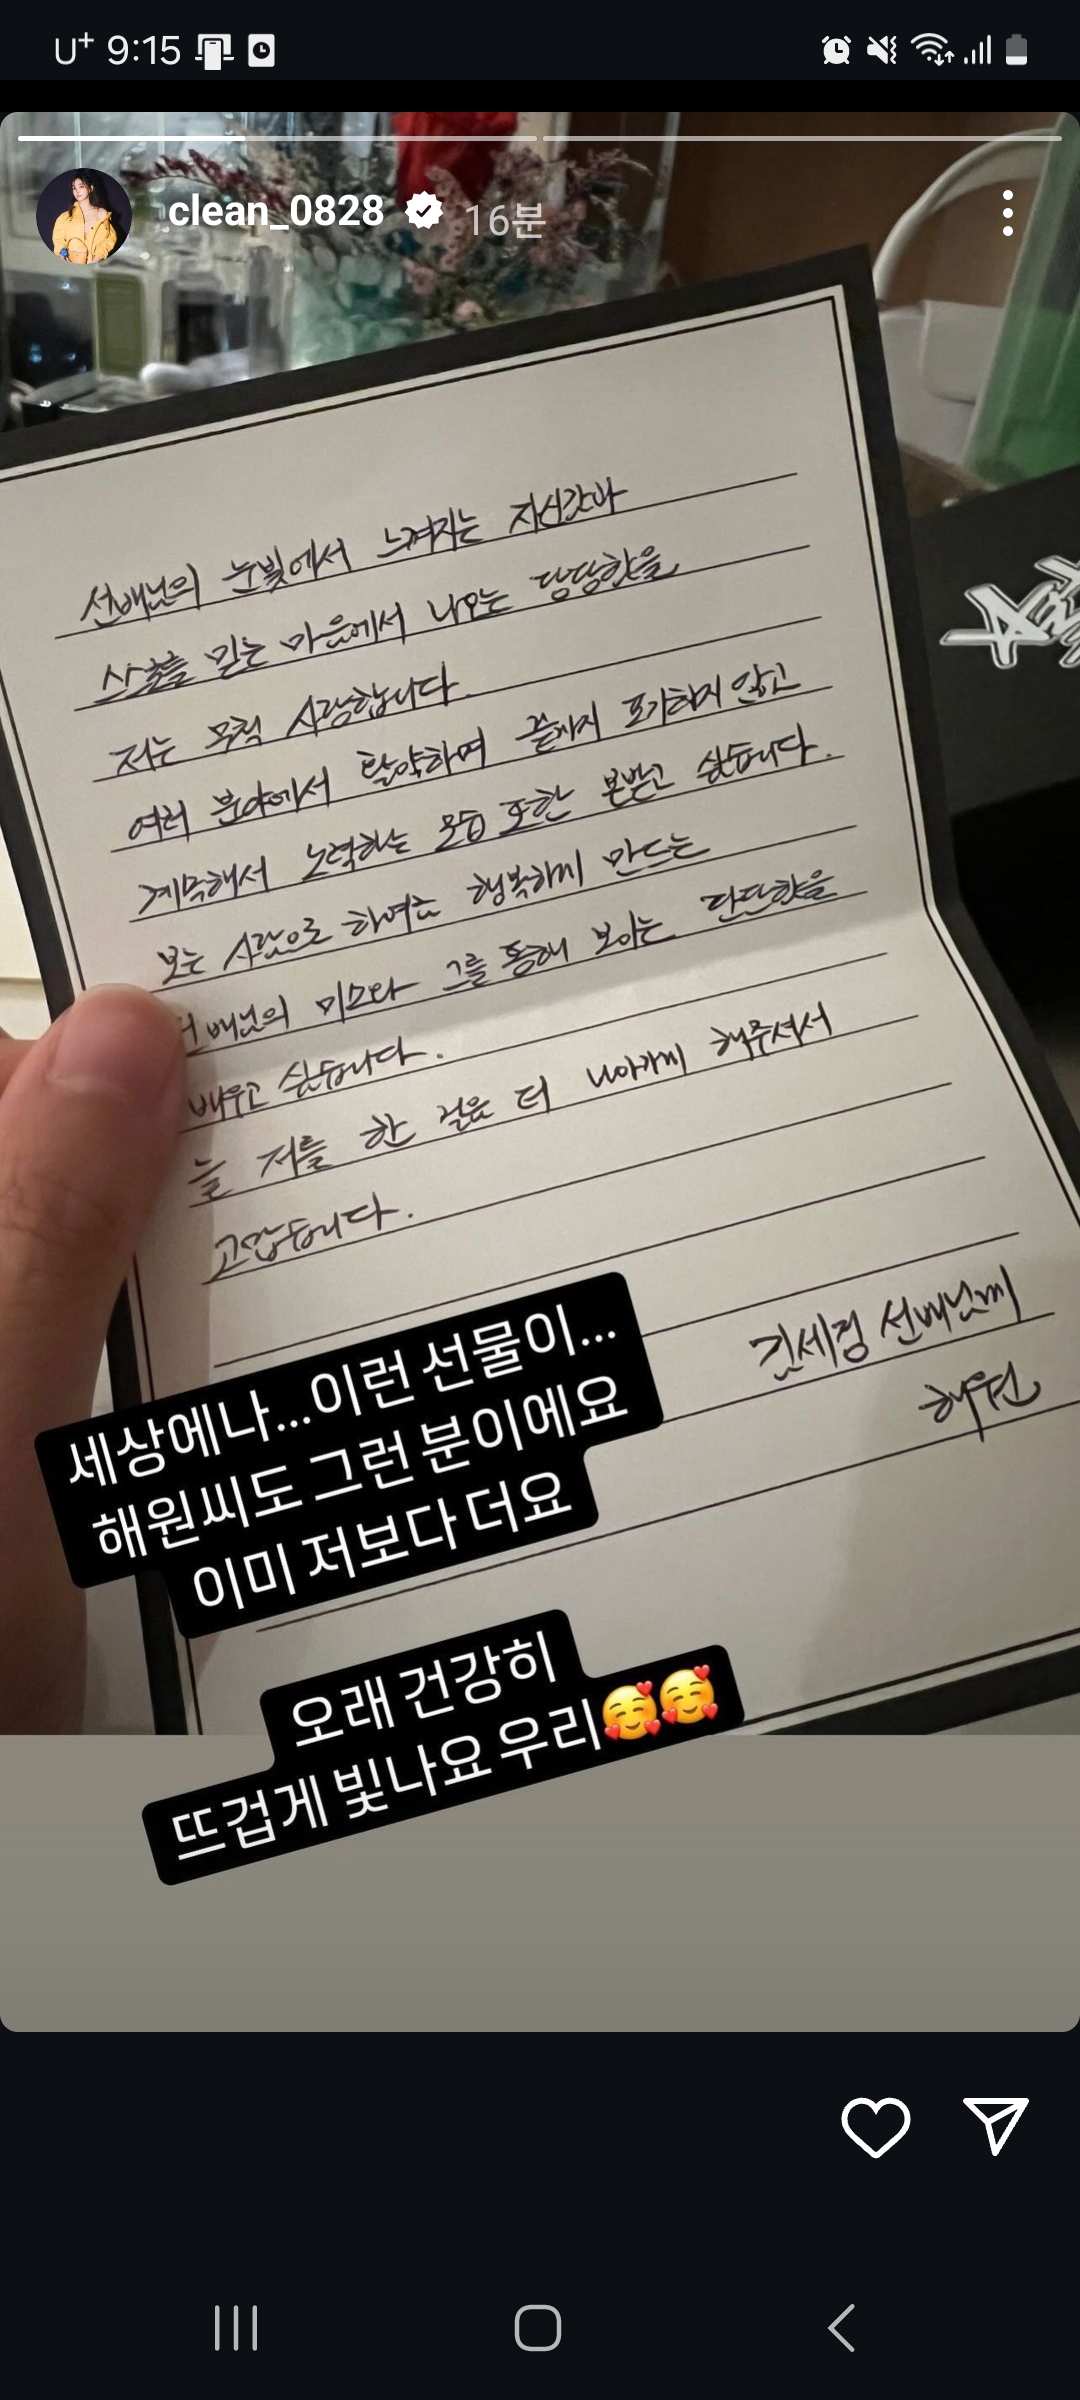 U⁺ 9:15
clean_0828 16분
선배님의 눈빛에서 느껴지는 자신감과
스스로를 믿는 마음에서 나오는 당당함을
저는 무척 사랑합니다.
여러 분야에서 활약하며 끝까지 포기하지 않고
계속해서 노력하는 모습 또한 본받고 싶습니다.
보는 사람으로 하여금 행복하게 만드는
선배님의 미소와 그를 통해 보이는 단단함을
배우고 싶습니다.
늘 저를 한 걸음 더 나아가게 해주셔서
고맙습니다.
김세정 선배님께
해원
세상에나...이런 선물이...
해원씨도 그런 분이에요
이미 저보다 더요
오래 건강히
뜨겁게 빛나요 우리🥰🥰